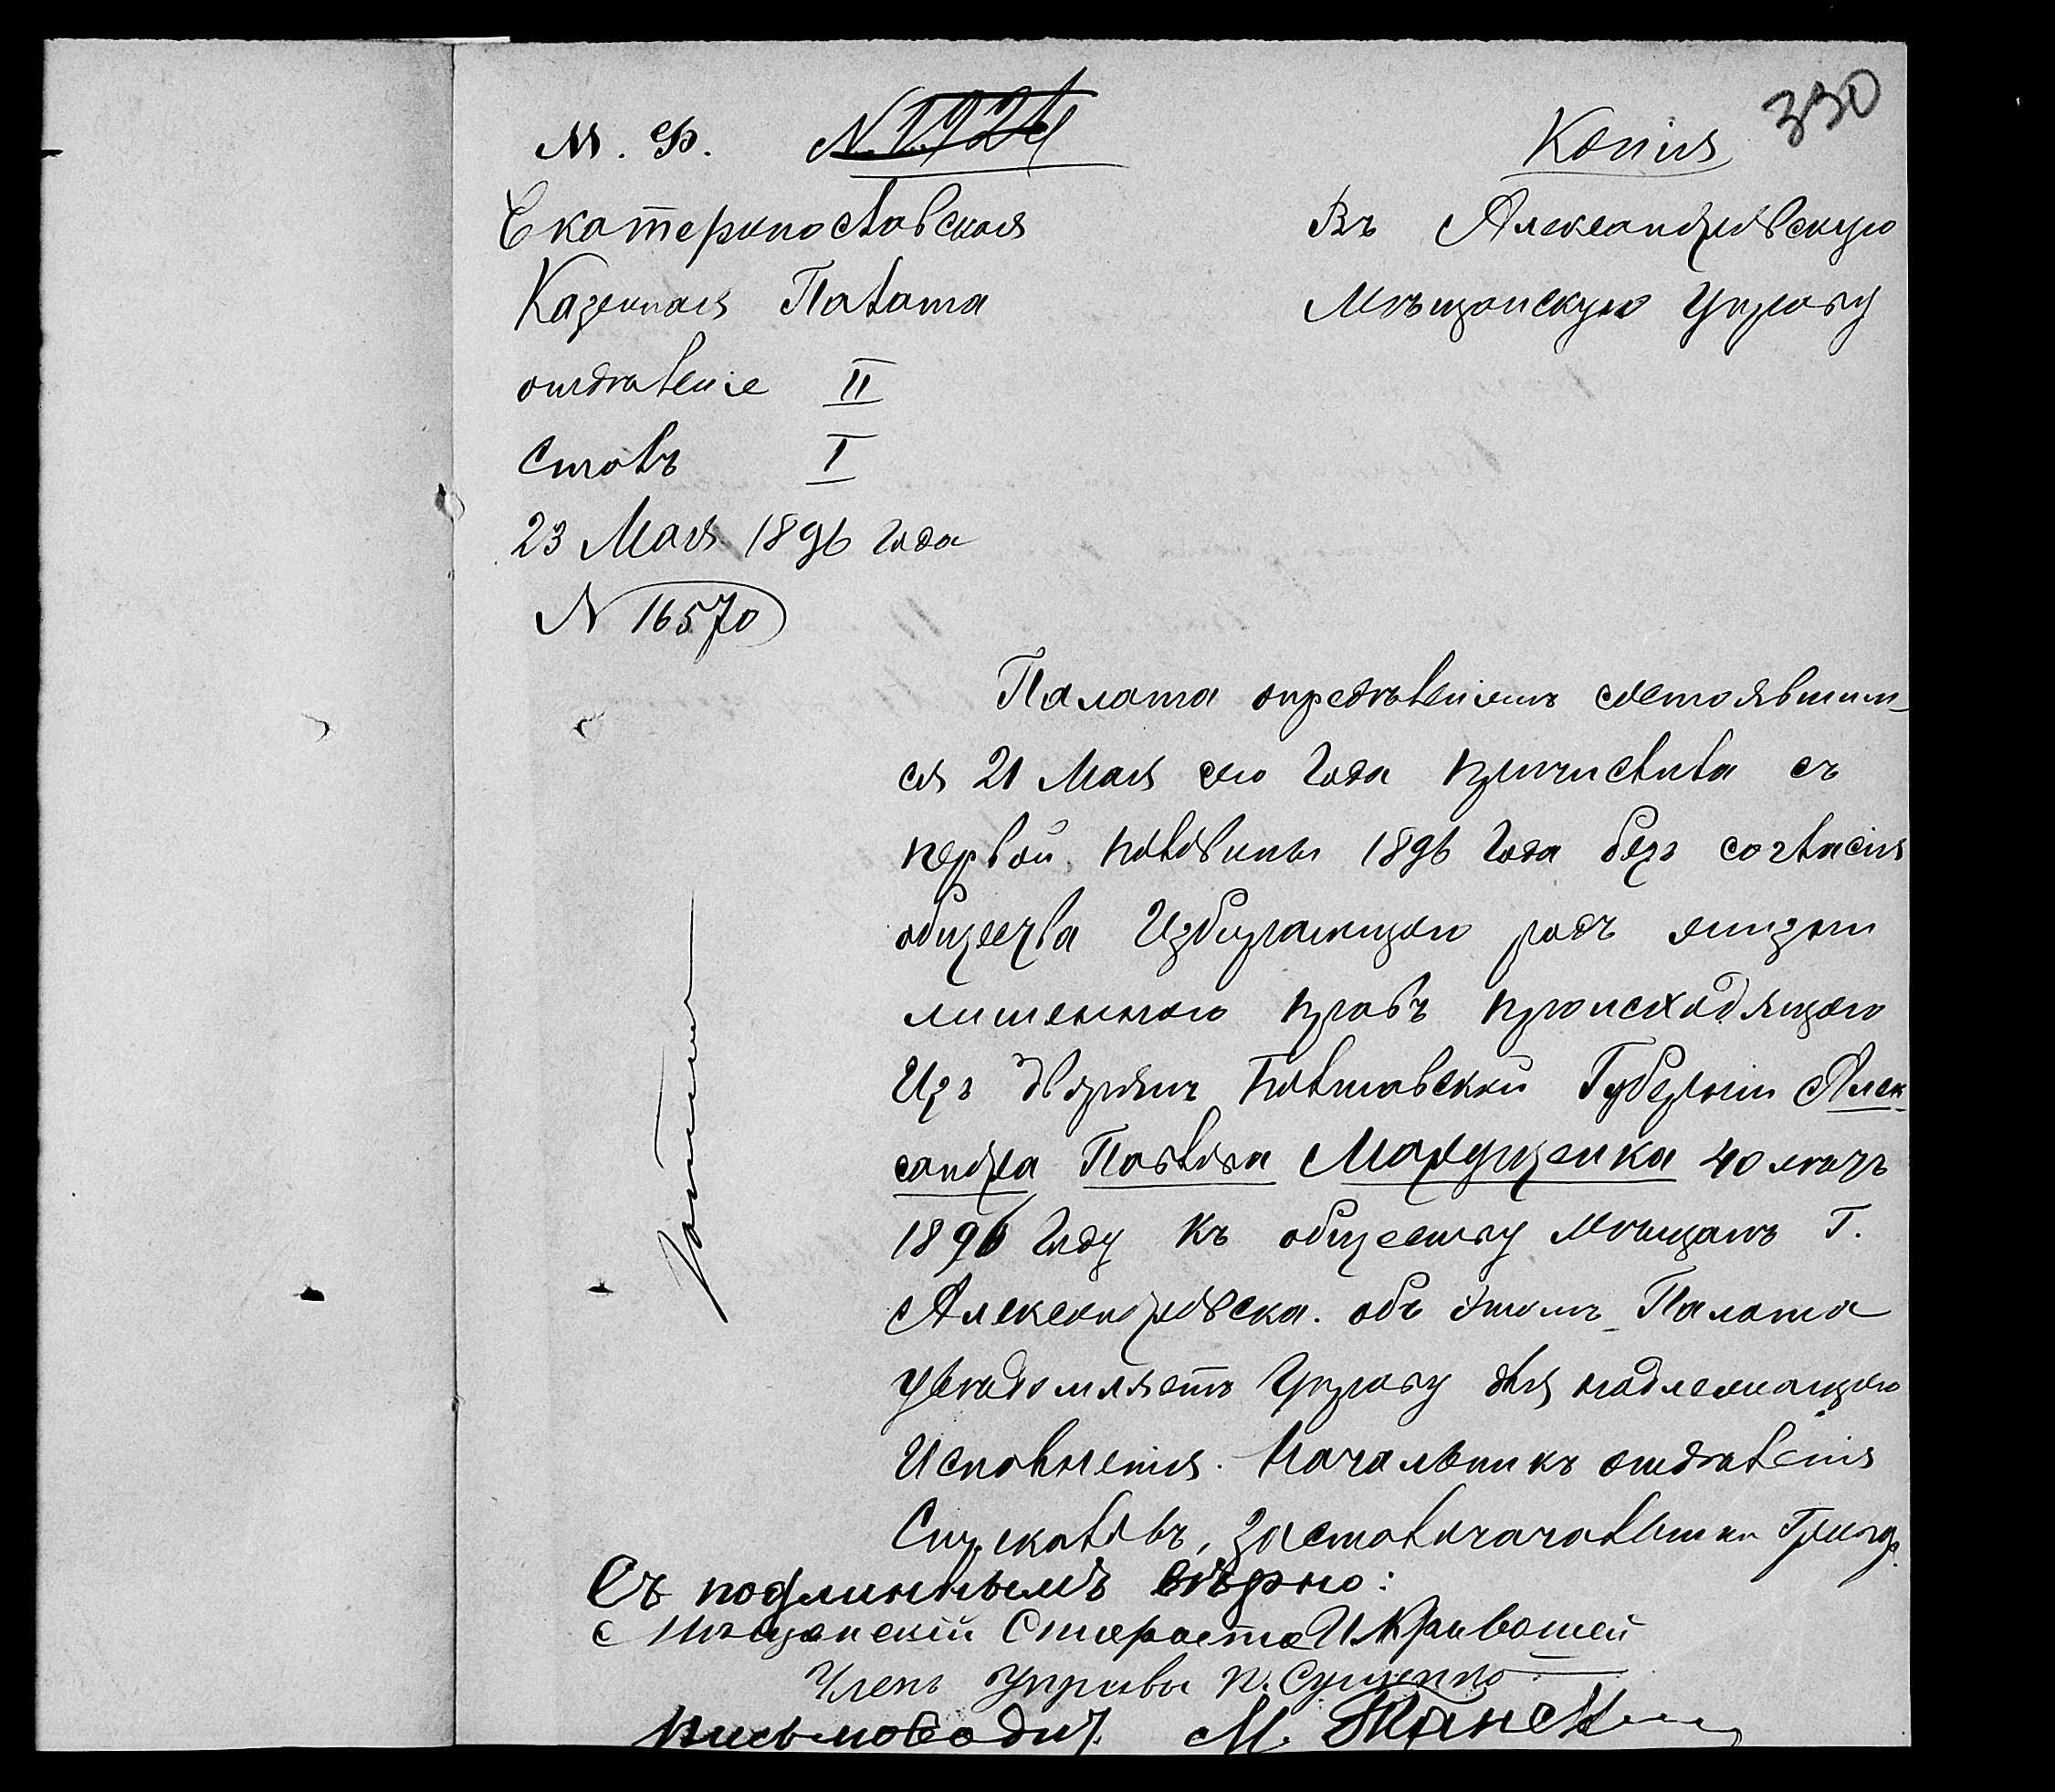 330
М. Ф. № 1924
Копія
Екатеринославская
Казенная Палата
отдѣленіе II
столъ I
23 Мая 1896 года
N 16570
Въ Александровскую
Мѣщанскую Управу
Палата опредѣленіемъ состоявшим-
ся 21 Мая сего года причислила съ
первой половины 1896 года безъ согласія
общества Избирающаго родъ жизни
лишеннаго правъ происходящаго
Изъ дворянъ Полтавской Губерніи Алек-
сандра Павлова Марущенка 40 лѣтъ
1896 году къ обществу мѣщанъ Г.
Александровска. объ этомъ Палата
увѣдомляетъ Управу для надлежащаго
Исполненія. Начальникъ отдѣленія
за столоначальника
Съ подлиннымъ вѣрно:
Мѣщанскій Староста И. Кривошей
Членъ Управы П. Сущенко
письмовод.